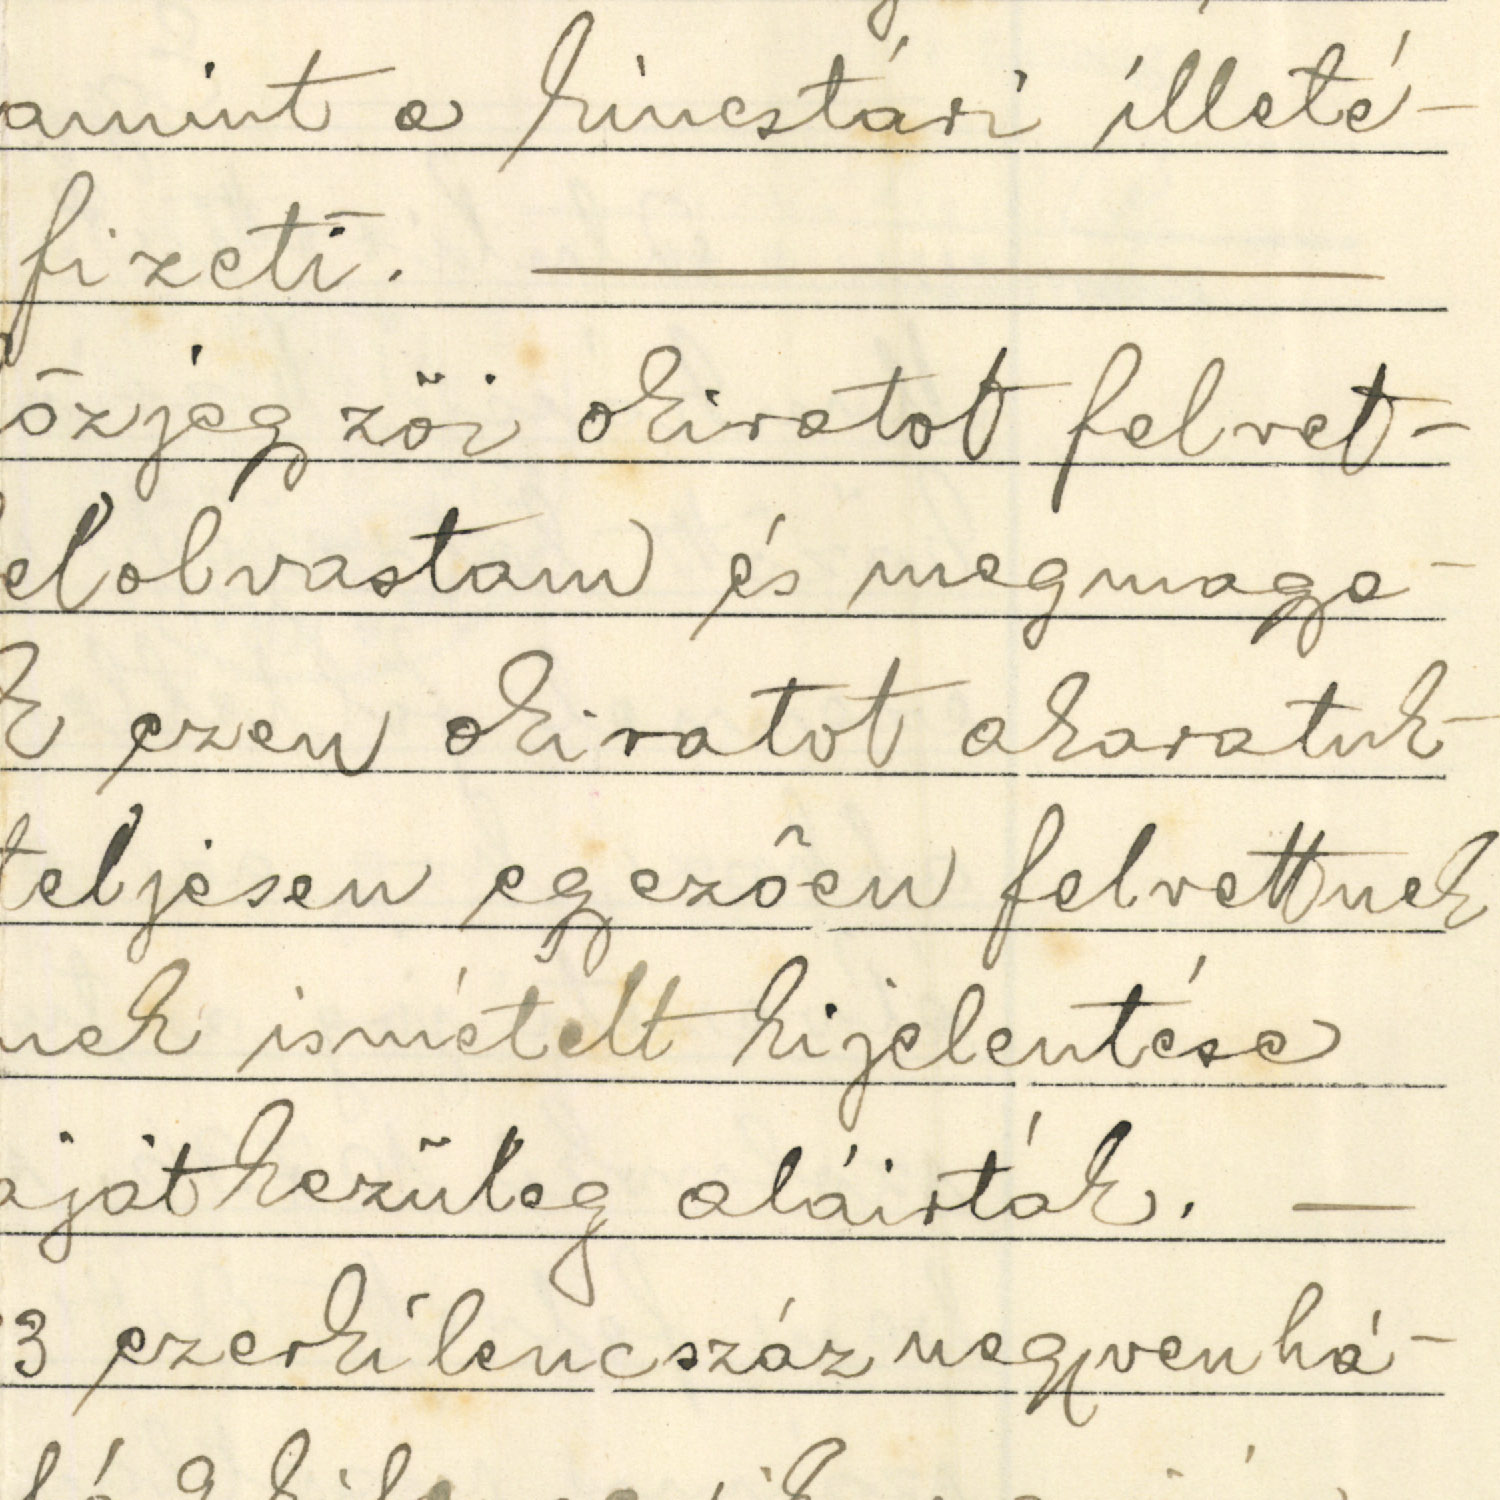 amint a kincstári illeté-
fizeti.
özjegyzői okiratot felvet-
elolvastam és megmaga-
k ezen okiratot akaratuk-
teljesen egyezően felvettnek
nek ismételt kijelentése
aját kezüleg aláirták. —
3 ezerkilencszáznegyvenhá-